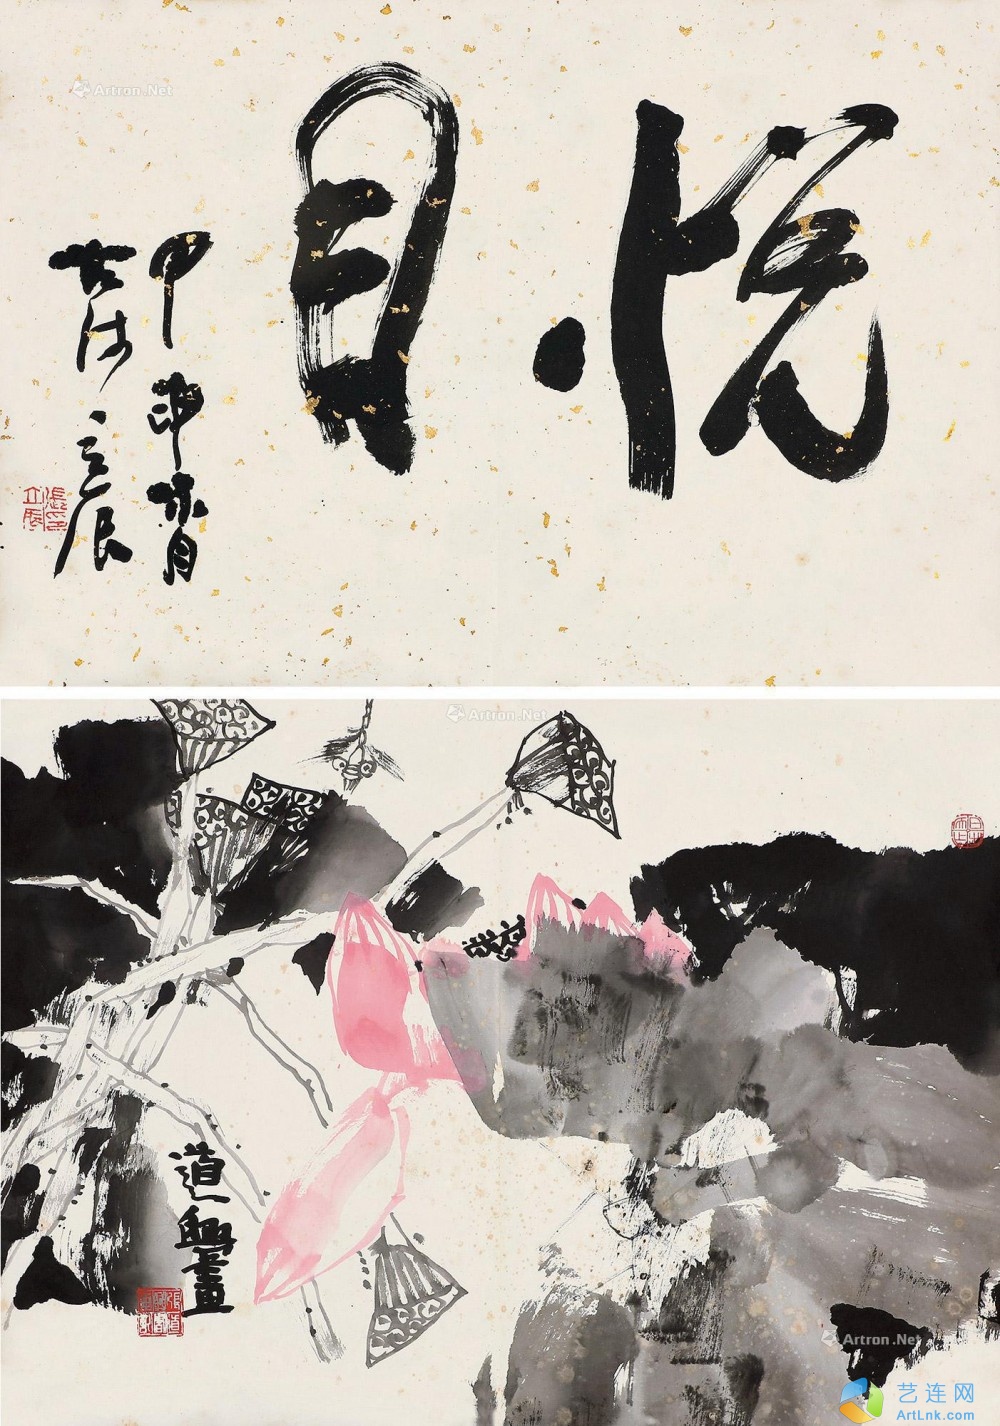 Artron.Net
悦目
甲申
古沛立辰
Artron.Net
道興畫
Artron.Net
艺连网
ArtLnk.com